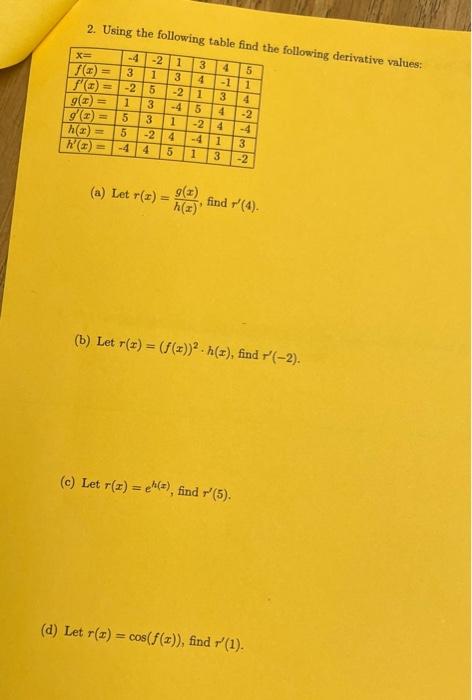 2. Using the following table find the following derivative values:
x= -4 -2 1 3 4 5
f(x) = 3 1 3 4 -1 1
f'(x) = -2 5 -2 1 3 4
g(x) = 1 3 -4 5 4 -2
g'(x) = 5 3 1 -2 4 -4
h(x) = 5 -2 4 -4 1 3
h'(x) = -4 4 5 1 3 -2
(a) Let r(x) = g(x)/h(x), find r'(4).
(b) Let r(x) = (f(x))² · h(x), find r'(-2).
(c) Let r(x) = e^{h(x)}, find r'(5).
(d) Let r(x) = cos(f(x)), find r'(1).